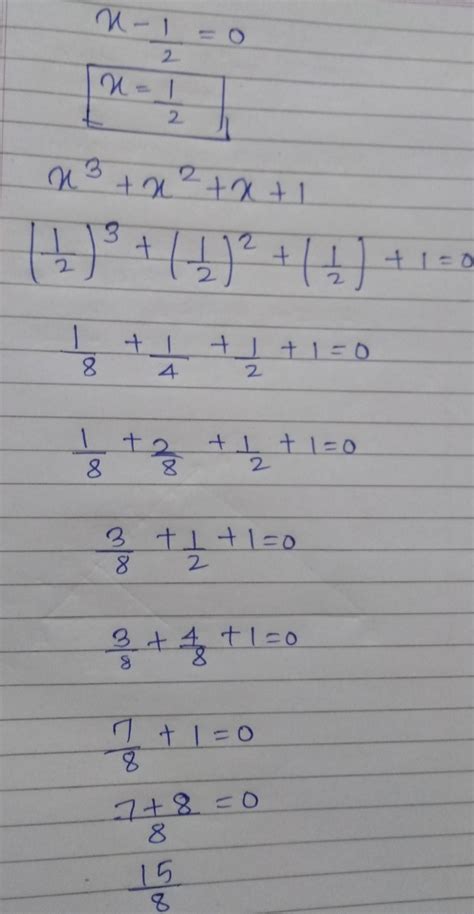 x - 1/2 = 0
x = 1/2
x³ + x² + x + 1
(1/2)³ + (1/2)² + (1/2) + 1 = 0
1/8 + 1/4 + 1/2 + 1 = 0
1/8 + 2/8 + 1/2 + 1 = 0
3/8 + 1/2 + 1 = 0
3/8 + 4/8 + 1 = 0
7/8 + 1 = 0
7 + 8/8 = 0
15/8